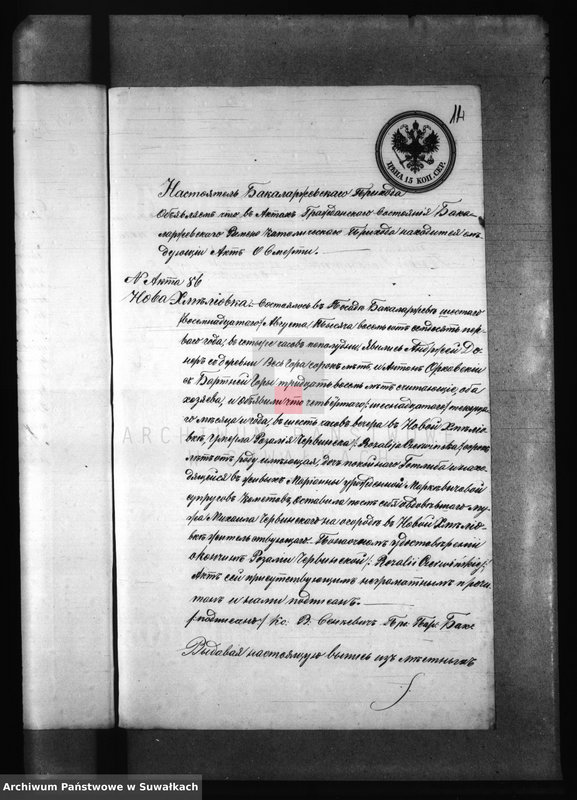 14
ЦѢНА 15 КОП. СЕР.
Настоятель Бакаларжевскаго Прихода
Объявляетъ что въ Актахъ Гражданскаго Состоянія Бака-
ларжевскаго Римско Католическаго Прихода находится слѣ-
дующій Актъ о Смерти.
N Акта 86
Нова Хмѣлевка: Состоялось въ Посадѣ Бакаларжевѣ шестаго
/восемнадцатаго/ Августа тысяча восемьсотъ семьдесятъ пер-
ваго года, въ часовъ пополудни. Явились Андржей
изъ деревни Весь Гора сорокъ лѣтъ и Антонъ
съ Бартней Горы тридцать восемь лѣтъ считающіе, оба
хозяева, и объявили что четвёртаго /шестнадцатаго/ текуща-
го мѣсяца и года, въ шесть часовъ вечера въ Новой Хмѣлев-
кѣ, умерла Розалія Червинска /: Rozalija Czerwinska :/ сорокъ
лѣтъ отъ роду имѣющая, дочь покойнаго Готлиба и нахо-
дящейся въ живыхъ Маріанны урожденной Маркевичовой
супруговъ оставила послѣ себя овдовѣвшаго му-
жа Михаила Червинскаго на осаде въ Новой Хмѣлев-
кѣ жительствующаго. По настоящемъ удостовѣреніи
о кончинѣ Розаліи Червинской /: Rozalii Czerwińskiej :/
Актъ сей присутствующимъ неграматнымъ прочи-
танъ и нами подписанъ.
/подписалъ/ Кс: В: Сенкевичъ Пр: Пар: Бакс
Выдавая настоящую выпись изъ мѣстныхъ
ARCHIWUM
SUWAŁKACH
Archiwum Państwowe w Suwałkach